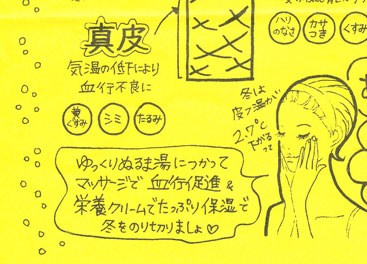 真皮
気温の低下により
血行不良に
黄くすみ
シミ
たるみ
ハリのなさ
カサつき
くすみ
冬は
皮フ温が
2.7℃
下がるって
ゆっくりぬるま湯につかって
マッサージで 血行促進 &
栄養クリームでたっぷり保湿で
冬をのり切りましょ♡